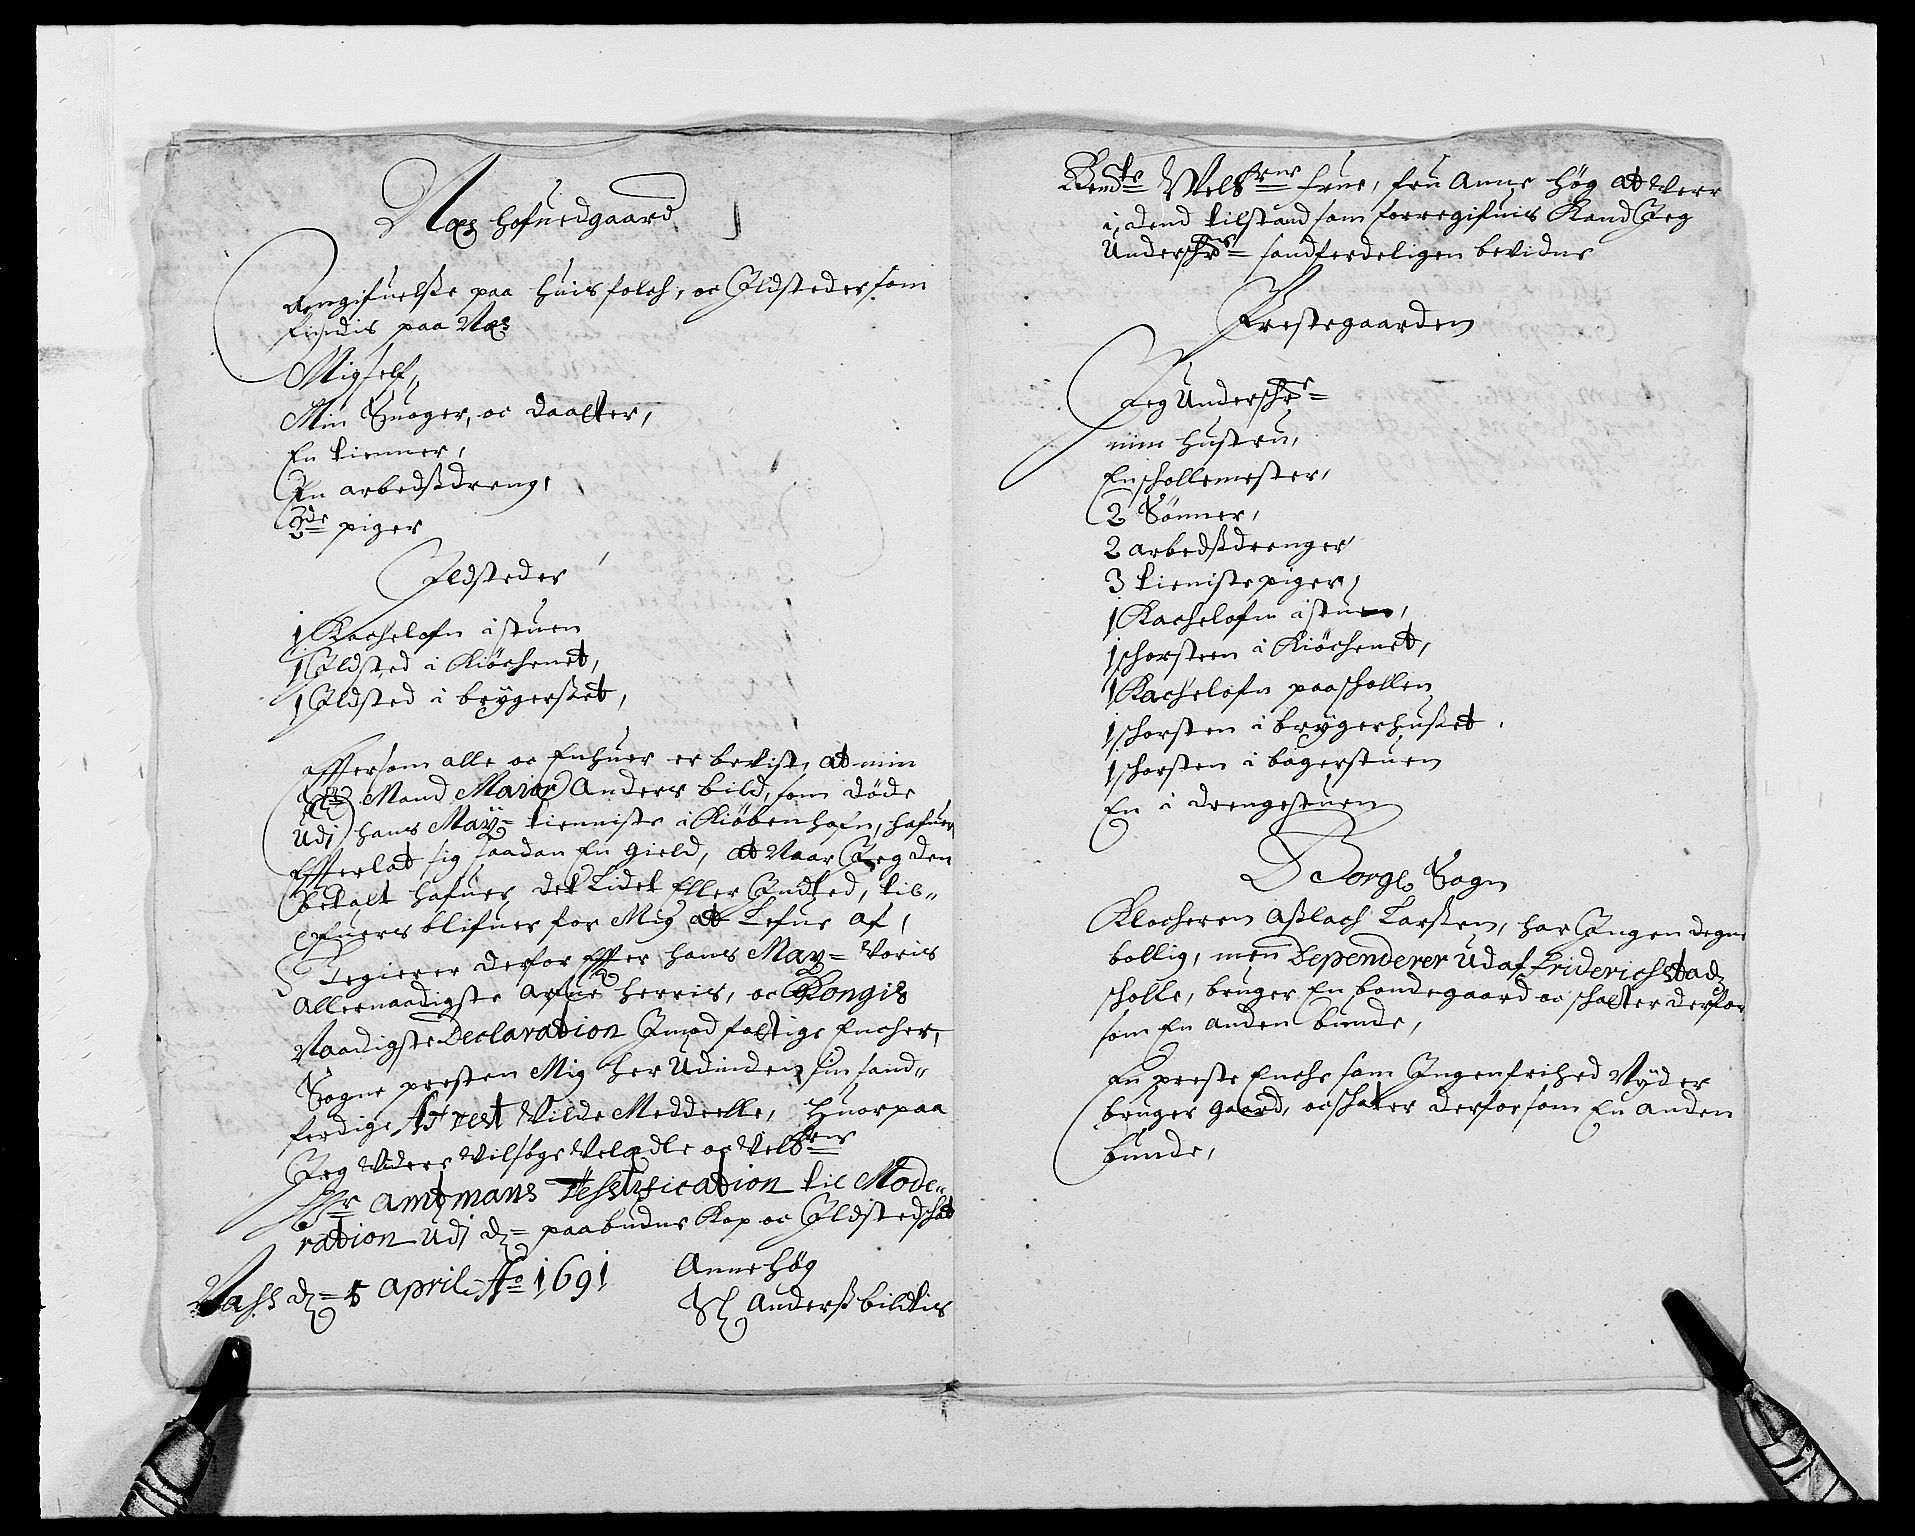 Næs Hofuedgaard
Angifuelsse paa Huis folch, oc Ildsteder som
findis paa Næs
Migself,
Min Suoger, oc Daatter,
En tienner,
En arbedsdreng,
2de piger
Ildsteder
1 Kachelofn i stuen
1 Ildsted i Kiöchenet,
1 Ildsted i brygersset,
Effersom alle oc Enhuer er bevist, at min
Sl Mand Maior Anders bild, som döde
Udj hans May= tienniste i Kiöbenhafn, hafuer
Effterlat sig saadan En gield, at Naar Jeg den
betalt hafuer, det Lidet Eller Indted, til-
Ofuers blifuer for Mig at Lefue af,
Begierer derfor effter hans May= Voris
Allernaadigste Arfue Herris, oc Kongis
Naadigste Declaration Imod fattige Encher,
Sogne presten Mig her Udinden sin sand-
ferdige Attest Vilde Meddeelle, Huorpaa
Jeg Videre Vilsöge Velædle oc Velbrne
Hr Amtmans Testification til Mode-
ration Udj d= paabudne Kop oc Ildsted schat
Næss d= 5 April Ao 1691
Anne Hög
Sl Anderss bildtis
Bemte Velbrne frue, fru Anne Hög at Verre
i, dend tilstand som forregifuis Kand Jeg
Underschrefne sandferdeligen bevidne
Prestegaarden
Jeg Underschr=
min Hustru,
En schollemester,
2 Sönner,
2 arbedsdrenger
3 tieniste piger,
1 Kachelofn i stuen,
1 schorsteen i Kiöchenet,
1 Kachelofn paa schollen
1 schorsten i brygerhuset,
1 schorsten i bagerstuen
En i drengestuen
Borge Sogn
Klocheren Asslach Larssen, har Ingen degne
bollig, men Dependerer Udaf Friderichstads
scholle, bruger En bondegaard oc schatter derfor
som En anden bunde,
En preste Enche som Ingen frihed Nyder
bruger gaard, oc schatter derfor som En anden
bunde,